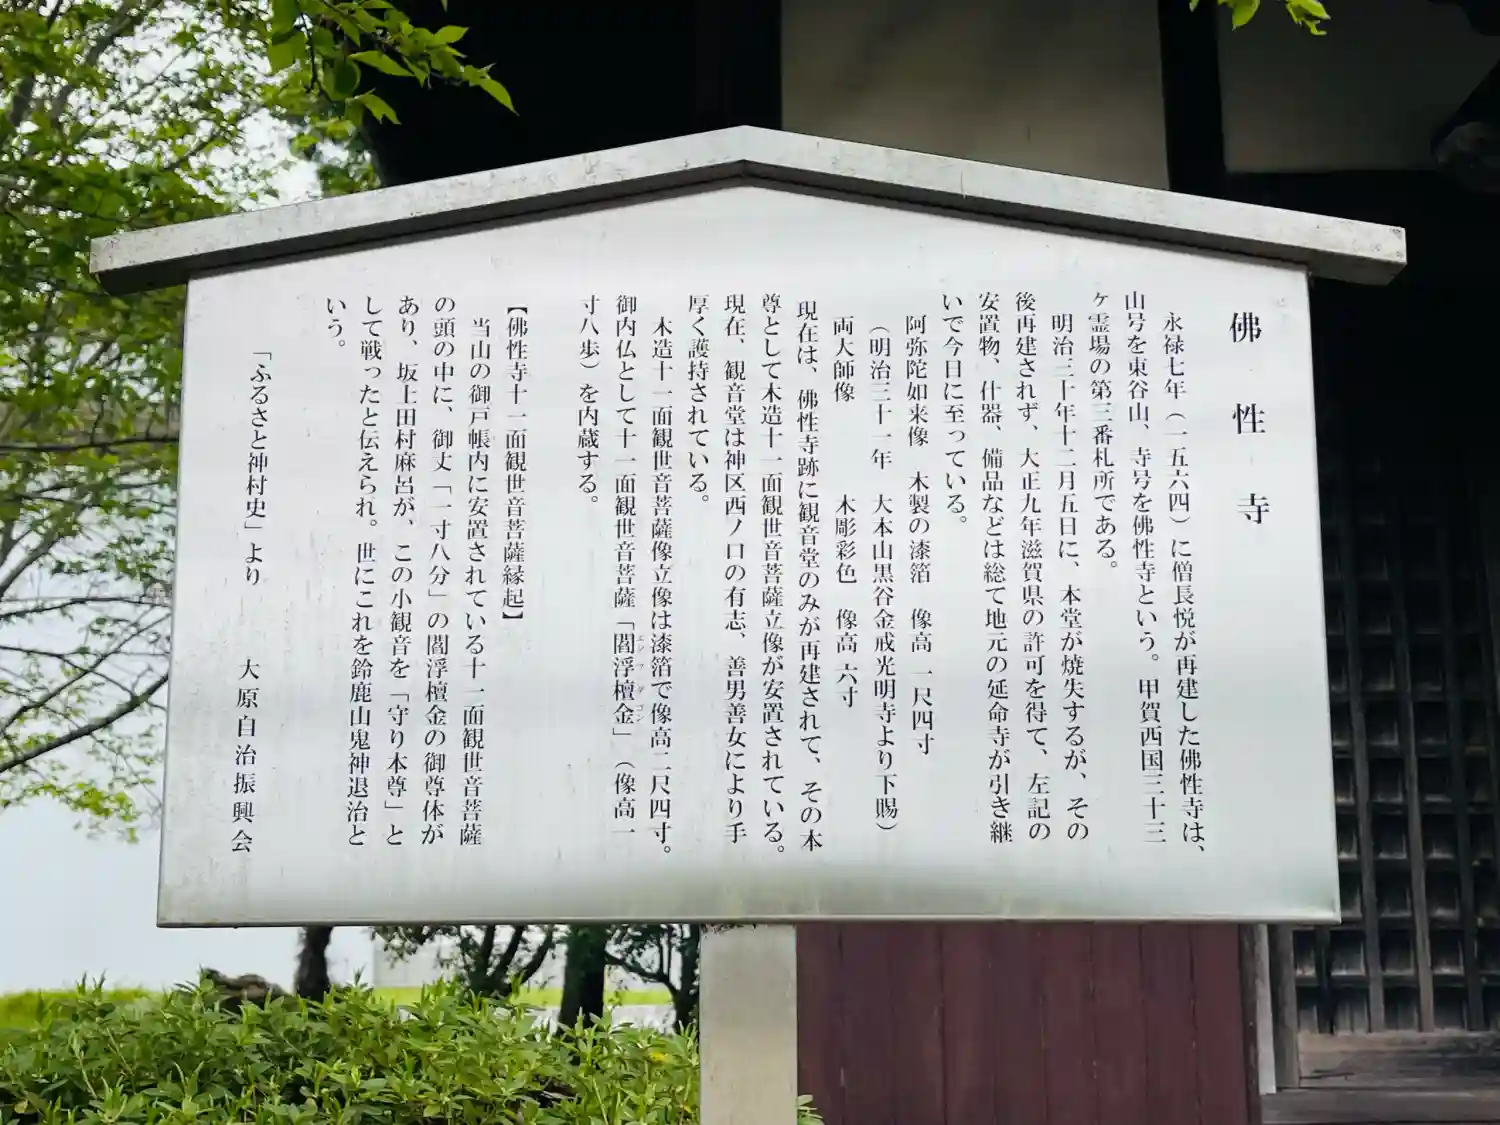 佛性寺
永禄七年（一五六四）に僧長悦が再建した佛性寺は、
山号を東谷山、寺号を佛性寺という。甲賀西国三十三
ケ霊場の第三番札所である。
明治三十年十二月五日に、本堂が焼失するが、その
後再建されず、大正九年滋賀県の許可を得て、左記の
安置物、什器、備品などは総て地元の延命寺が引き継
いで今日に至っている。
阿弥陀如来像　木製の漆箔　像高一尺四寸
（明治三十一年　大本山黒谷金戒光明寺より下賜）
両大師像　木彫彩色　像高六寸
現在は、佛性寺跡に観音堂のみが再建されて、その本
尊として木造十一面観世音菩薩立像が安置されている。
現在、観音堂は神区西ノ口の有志、善男善女により手
厚く護持されている。
木造十一面観世音菩薩像立像は漆箔で像高二尺四寸。
御内仏として十一面観世音菩薩「閻浮檀金」（像高一
寸八歩）を内蔵する。
【佛性寺十一面観世音菩薩縁起】
当山の御戸帳内に安置されている十一面観世音菩薩
の頭の中に、御丈「一寸八分」の閻浮檀金の御尊体が
あり、坂上田村麻呂が、この小観音を「守り本尊」と
して戦ったと伝えられ。世にこれを鈴鹿山鬼神退治と
いう。
「ふるさと神村史」より　大原自治振興会